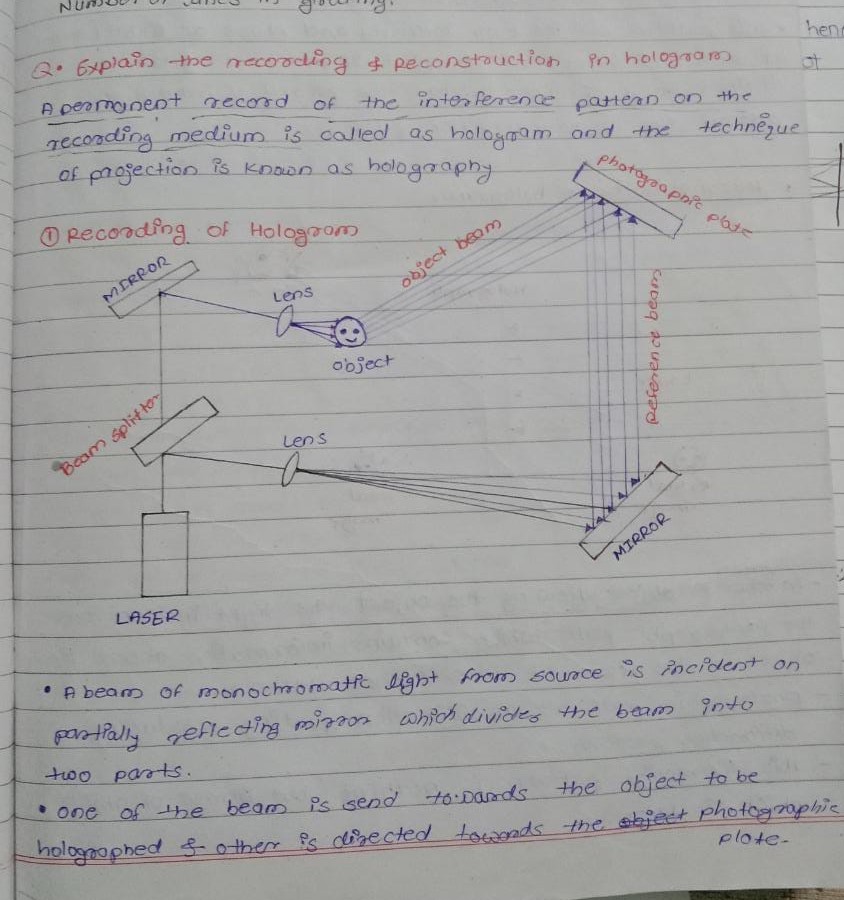 Number of lines is growing.
hen
ot
Q. Explain the recording & reconstruction in hologram
A permanent record of the interference pattern on the
recording medium is called as hologram and the technique
of projection is known as holography
① Recording of Hologram
Photographic plate
object beam
MIRROR
Lens
object
Refrence beam
Beam splitter
Lens
MIRROR
LASER
• A beam of monochromatic light from source is incident on
partially reflecting mirror which divides the beam into
two parts.
• one of the beam is send towards the object to be
holographed & other is directed towards the object photographic
plate.